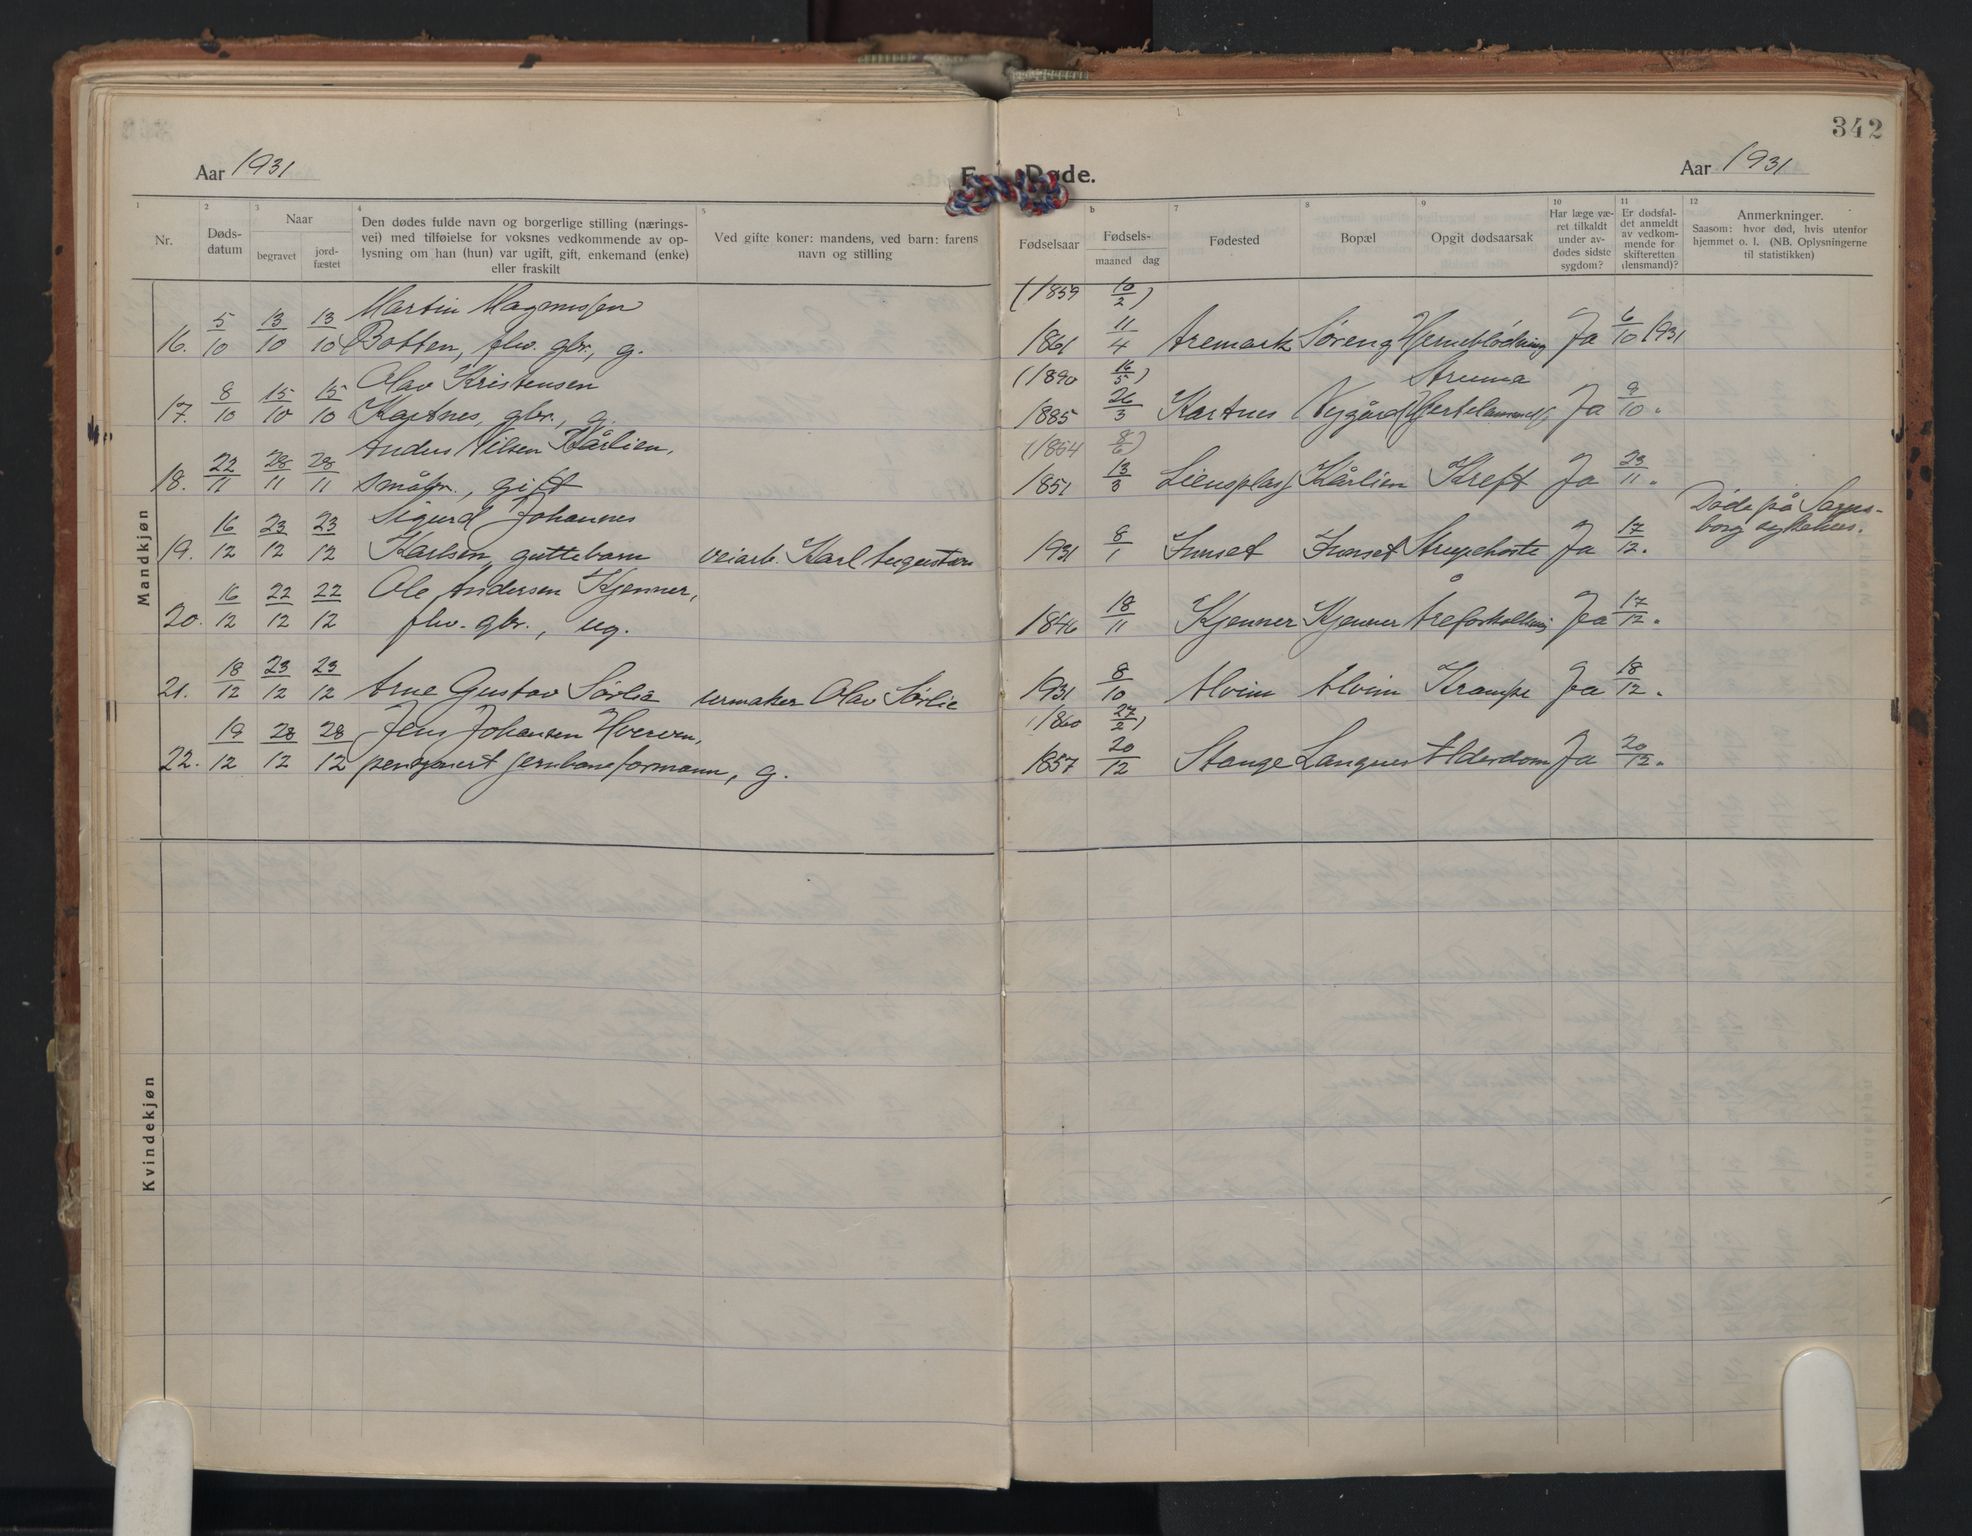 342
Aar 1931 F. Døde. Aar 1931
1 2 3 4 5 b 7 8 9 10 11 12
Nr. Døds-datum Naar begravet jord-fæstet Den dødes fulde navn og borgerlige stilling (nærings-vei) med tilføielse for voksnes vedkommende av op-lysning om han (hun) var ugift, gift, enkemand (enke) eller fraskilt Ved gifte koner: mandens, ved barn: farens navn og stilling Fødselsaar Fødsels-maaned dag Fødested Bopæl Opgit dødsaarsak Har læge væ-ret tilkaldt under av-dødes sidste sygdom? Er dødsfal-det anmeldt av vedkom-mende for skifteretten (lensmand)? Anmerkninger. Saasom: hvor død, hvis utenfor hjemmet o. l. (NB. Oplysningerne til statistikken)
Mandkjøn
Martin Magnussen (1859 10/2)
16. 5/10 13/10 13/10 Botten, fhv. gbr., g. 1861 11/4 Aremark Søreng Hjerneblødning Ja 6/10 1931
Olav Kristensen (1890 16/5) Struma
17. 8/10 15/10 15/10 Kartnes, gbr., g. 1885 26/3 Kartnes Nygård Ja 9/10 "
Anders Nilsen Kårlien, (1854 8/6)
18. 22/11 28/11 28/11 småbr., gift 1851 13/3 Liensplass Kårlien Kreft Ja 23/11 "
Sigurd Johannes Døde på Sarps-
19. 16/12 23/12 23/12 Karlsen, guttebarn veiarb. Karl Augustsen 1931 8/1 Strupehoste Ja 17/12 " borg sykehus.
Ole Andersen Kjenner,
20. 16/12 22/12 22/12 fhv. gbr., ug. 1846 18/11 Kjenner Kjenner Åreforkalkning Ja 17/12 "
21. 18/12 23/12 23/12 Arne Gustav Sørlie urmaker Olav Sørlie 1931 8/10 Alvim Alvim Krampe Ja 18/12 "
Jens Johansen (1860 27/2)
22. 19/12 28/12 28/12 pensjonert jernbaneformann, g. 1857 20/12 Stange Langnes Alderdom Ja 20/12 "
Kvindekjøn